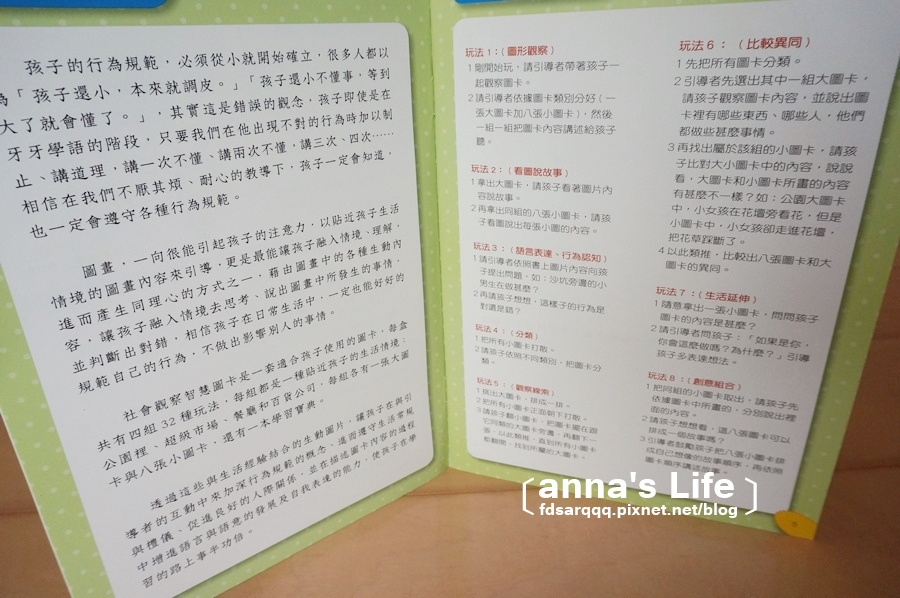 孩子的行為規範，必須從小就開始確立，很多人都以
為「孩子還小，本來就調皮。」「孩子還小不懂事，等到
大了就會懂了。」，其實這是錯誤的觀念，孩子即使是在
牙牙學語的階段，只要我們在他出現不對的行為時加以制
止、講道理，講一次不懂、講兩次不懂，講三次、四次……
相信在我們不厭其煩、耐心的教導下，孩子一定會知道，
也一定會遵守各種行為規範。
圖畫，一向很能引起孩子的注意力，以貼近孩子生活
情境的圖畫內容來引導，更是最能讓孩子融入情境、理解，
進而產生同理心的方式之一，藉由圖畫中的各種生動內
容，讓孩子融入情境去思考、說出圖畫中所發生的事情，
並判斷出對錯，相信孩子在日常生活中，一定也能好好的
規範自己的行為，不做出影響別人的事情。
社會觀察智慧圖卡是一套適合孩子使用的圖卡，每盒
共有四組32種玩法，每組都是一種貼近孩子的生活情境：
公園裡、超級市場、餐廳和百貨公司，每組各有一張大圖
卡與八張小圖卡，還有一本學習寶典。
透過這些與生活經驗結合的生動圖片，讓孩子在與引
導者的互動中來加深行為規範的概念，進而遵守生活常規
與禮儀、促進良好的人際關係，並在描述圖卡內容的過程
中增進語言與語意的發展及自我表達的能力，使孩子在學
習的路上事半功倍。
玩法1：(圖形觀察)
1剛開始玩，請引導者帶著孩子一
起觀察圖卡。
2請引導者依據圖卡類別分好(一
張大圖卡加八張小圖卡)，然後
一組一組把圖卡內容講述給孩子
聽。
玩法2：(看圖說故事)
1拿出大圖卡，請孩子看著圖片內
容說故事。
2再拿出同組的八張小圖卡，請孩
子看圖說出每張小圖的內容。
玩法3：(語言表達、行為認知)
1請引導者依照書上圖片內容向孩
子提出問題，如：沙坑旁邊的小
男生在做甚麼？
2再請孩子想想，這樣子的行為是
對還是錯？
玩法4：(分類)
1把所有小圖卡打散。
2請孩子依照不同類別，把圖卡分
類。
玩法5：(觀察線索)
1挑出大圖卡，排成一排。
2把所有小圖卡正面朝下打散。
3請孩子翻小圖卡，把圖卡擺在跟
它同類的大圖卡旁邊，再翻下一
張，以此類推，直到所有小圖卡
都翻開，找到所屬的大圖卡。
玩法6：(比較異同)
1先把所有圖卡分類。
2引導者先選出其中一組大圖卡，
請孩子觀察圖卡內容，並說出圖
卡裡有哪些東西、哪些人，他們
都做些甚麼事情。
3再找出屬於該組的小圖卡，請孩
子比對大小圖卡中的內容，說說
看，大圖卡和小圖卡所畫的內容
有甚麼不一樣？如：公園大圖卡
中，小女孩在花壇旁看花，但是
小圖卡中，小女孩卻走進花壇，
把花草踩斷了。
4以此類推，比較出八張圖卡和大
圖卡的異同。
玩法7：(生活延伸)
1隨意拿出一張小圖卡，問問孩子
圖卡的內容是甚麼？
2請引導者問孩子：「如果是你，
你會這麼做嗎？為什麼？」引導
孩子多表達想法。
玩法8：(創意組合)
1把同組的小圖卡取出，請孩子先
依據圖卡中所畫的，分別說出裡
面的內容。
2請孩子想想看，這八張圖卡可以
排成一個故事嗎？
3引導者鼓勵孩子把八張小圖卡排
成自己想像的故事順序，再依照
圖卡順序講述故事。
anna's Life
fdsarqqq.pixnet.net/blog